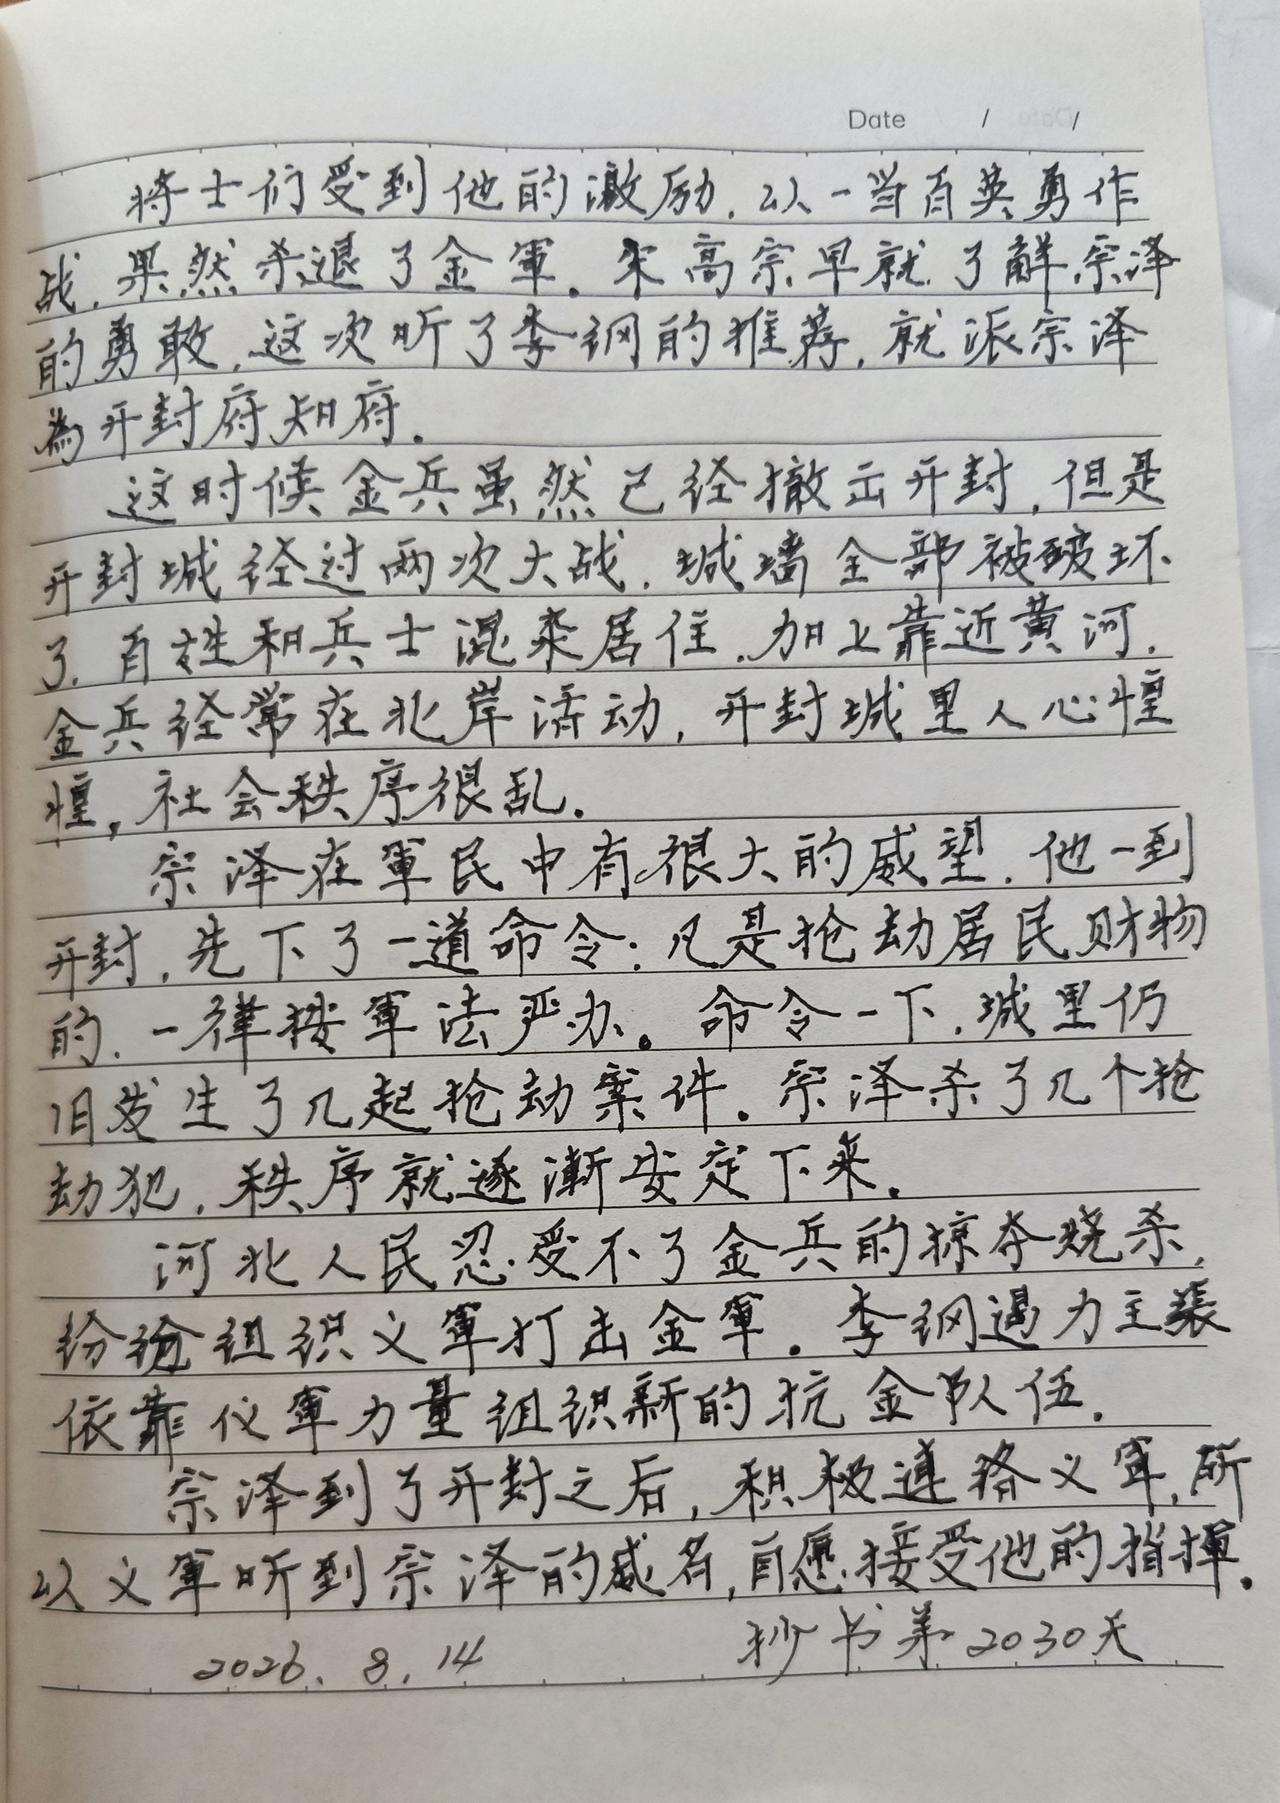 Date / /
将士们受到他的激励.以一当百英勇作
战.果然杀退了金軍.宋高宗早就了解宗泽
的勇敢,这次听了李纲的推荐,就派宗泽
為开封府知府.
这时候金兵虽然已经撤出开封,但是
开封城经过两次大战.城墙全部被破坏
了.百姓和兵士混杂居住.加上靠近黄河.
金兵经常在北岸活动,开封城里人心惶
惶,社会秩序很乱.
宗泽在軍民中有很大的威望.他一到
开封,先下了一道命令:凡是抢劫居民财物
的.一律按軍法严办。命令一下.城里仍
旧发生了几起抢劫案件.宗泽杀了几个抢
劫犯.秩序就逐漸安定下来.
河北人民忍受不了金兵的掠夺烧杀,
纷纷组织义軍打击金軍.李纲遏力主张
依靠仪軍力量组织新的抗金队伍.
宗泽到了开封之后,积极連络义軍,所
以义軍听到宗泽的威名,自愿接受他的指揮.
2026.8.14 抄书第2030天